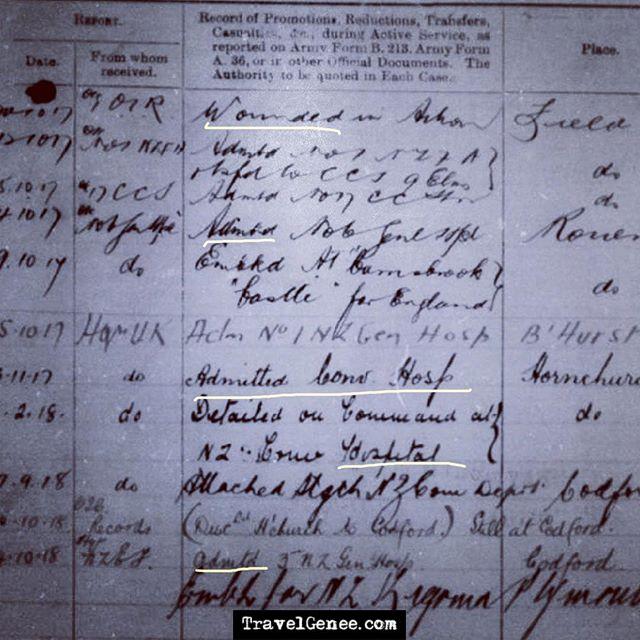 Report.
Record of Promotions, Reductions, Transfers,
Casualties, &c., during Active Service, as
reported on Army Form B. 213, Army Form
A. 36, or in other Official Documents. The
Authority to be quoted in Each Case.
Place.
Date.
From whom
received.
10.17 O.I.R. Wounded in Action Field
10.17 Admtd No 1 N.Z.F.A
to C C S do
5.10.17 17 C C S Admtd No 17 C C Stn do
4.10.17 No 6 Gen Hpl Admtd No 6 Gen Hpl Rouen
9.10.17 do Embkd At "Carnsbrook
"Castle" for England do
5.10.17 HQrs UK Adm No 1 NZ Gen Hosp B'Hurst
11.17 do Admitted Conv. Hosp Hornchurch
2.18. do Detailed on Command at do
NZ Conv Hospital
7.9.18 do Attached Strgth NZ Com Depot Codford
10.18 Records (Disc H'church to Codford.) Still at Codford.
10.18 Admtd 3 NZ Gen Hosp. Codford.
Embk for NZ
TravelGenee.com